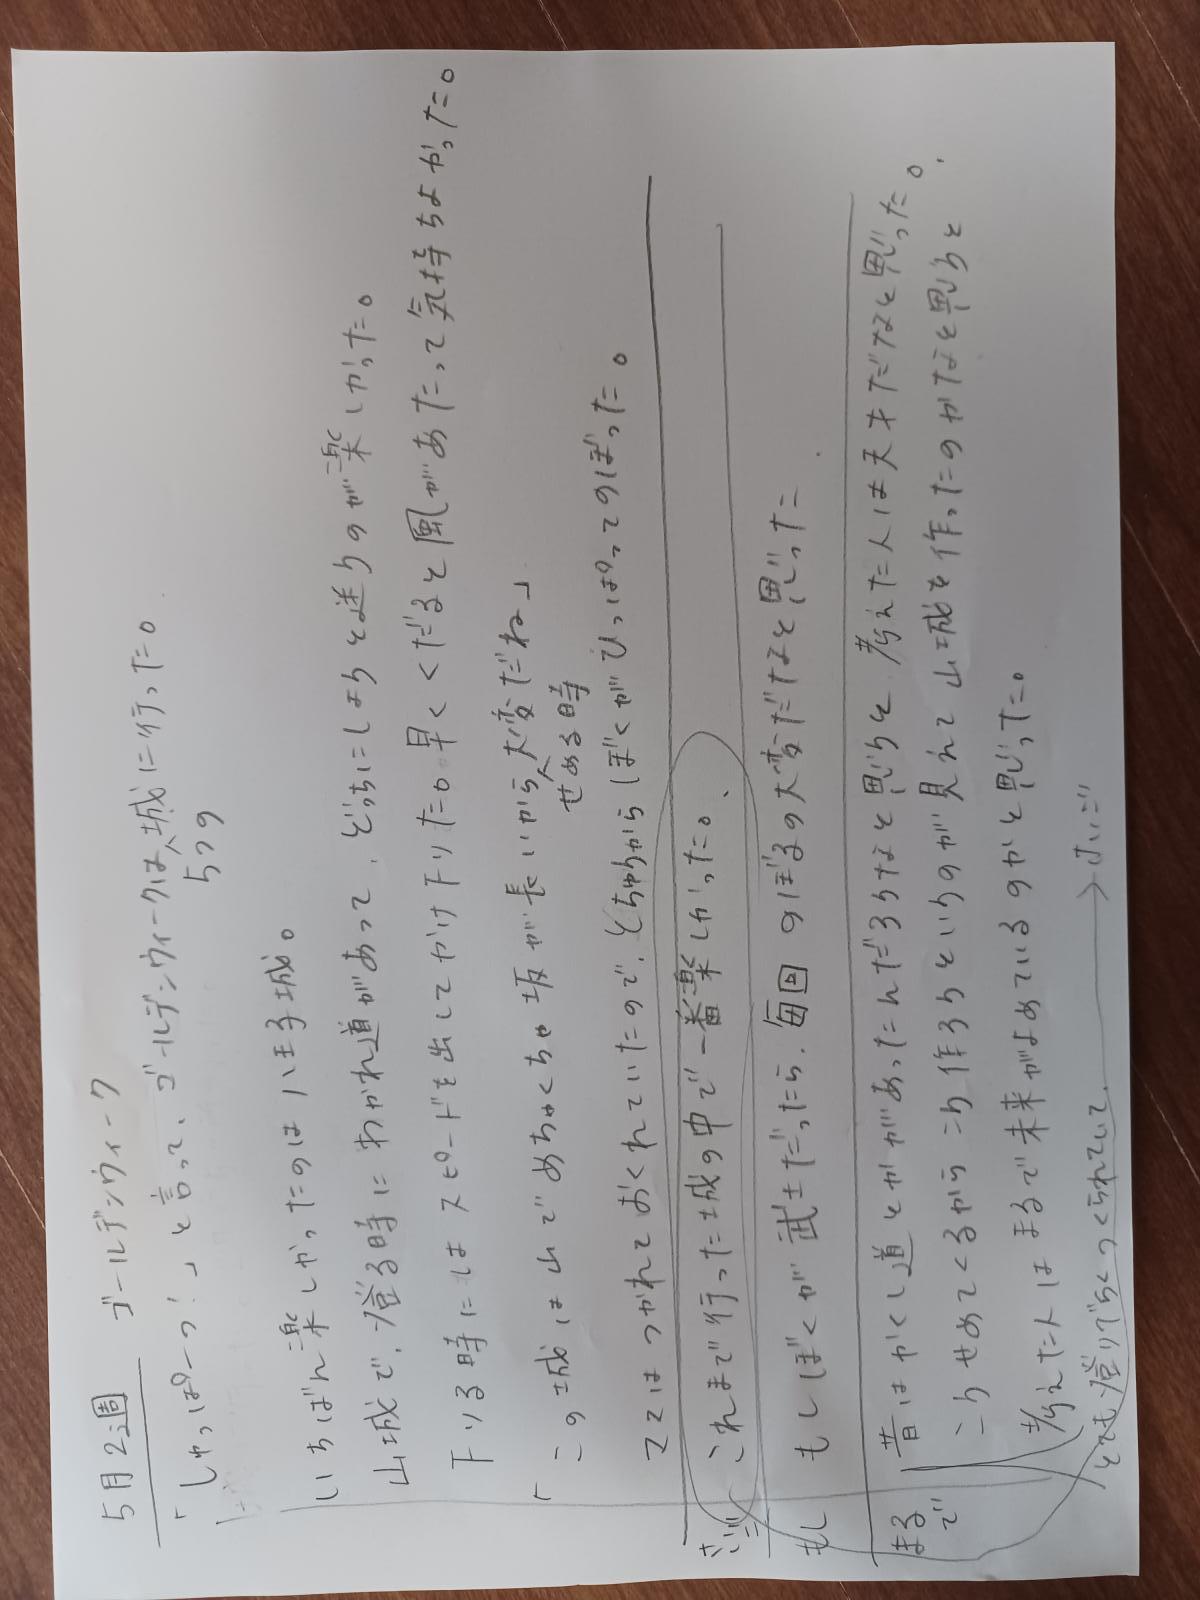 5月2週 ゴールデンウィーク
「しゅっぱーつ!」と言って、ゴールデンウィークは城に行った。
5つの
いちばん楽しかったのは八王子城。
山城で、登る時にわかれ道があって、どっちにしようと迷うのが楽しかった。
下りる時にはスピードを出してかけ下りた。早くくだると風があたって気持ちよかった。
「この城は山でめちゃくちゃ坂が長いから大変だね」
せめる時
ママはつかれておくれていたので、とちゅうからぼくがひっぱってのぼった。
さいご これまで行った城の中で一番楽しかった。
もし もしぼくが武士だったら、毎回のぼるの大変だなと思った
まるで 昔はかくし道とかがあったんだろうなと思うと、考えた人は天才だなと思った。
こうせめてくるからこう作ろうというのが見えて山城を作ったのかなと思うと
考えた人はまるで未来がよめているのかと思った。
とても登りづらくつくられていて → さいご